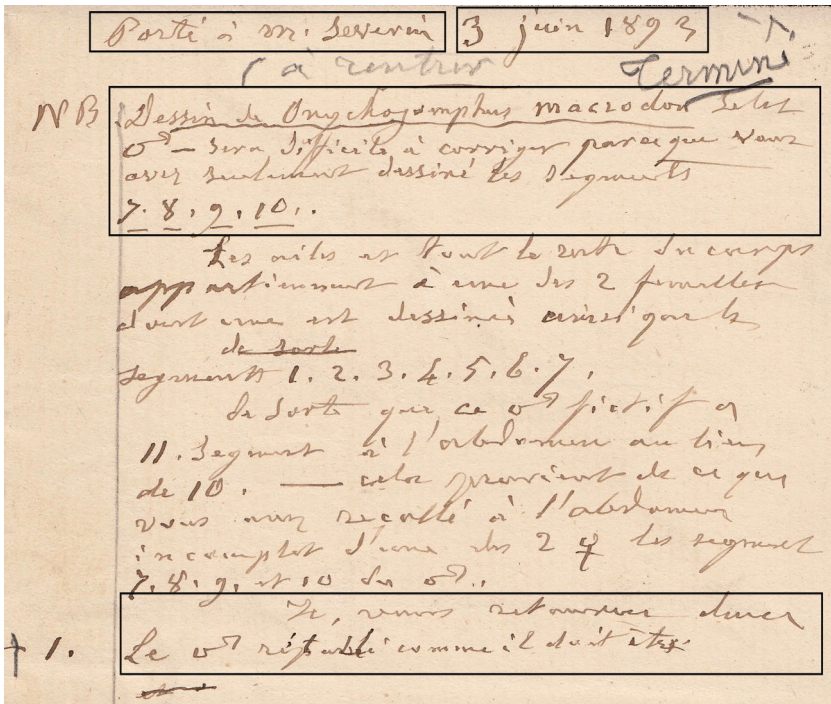 Porté à Mr Severin 3 juin 1893
à rentrer Terminé
NB Dessin de Onychogomphus macrodon Selys
♂ — sera difficile à corriger parceque vous
avez seulement dessiné les segments
7. 8. 9. 10..
Les ailes et tout le reste du corps
appartiennent à une des 2 femelles
dont une est dessinée ainsi que les
de sorte
segments 1. 2. 3. 4. 5. 6. 7.
de sorte que ce ♂ fictif a
11. Segment à l'abdomen au lieu
de 10. — cela provient de ce que
vous avez recollé à l'abdomen
incomplet d'une des 2 ♀ les segment
7. 8. 9. et 10 du ♂..
Je, vous retourner
† 1. Le ♂ comme il doit être